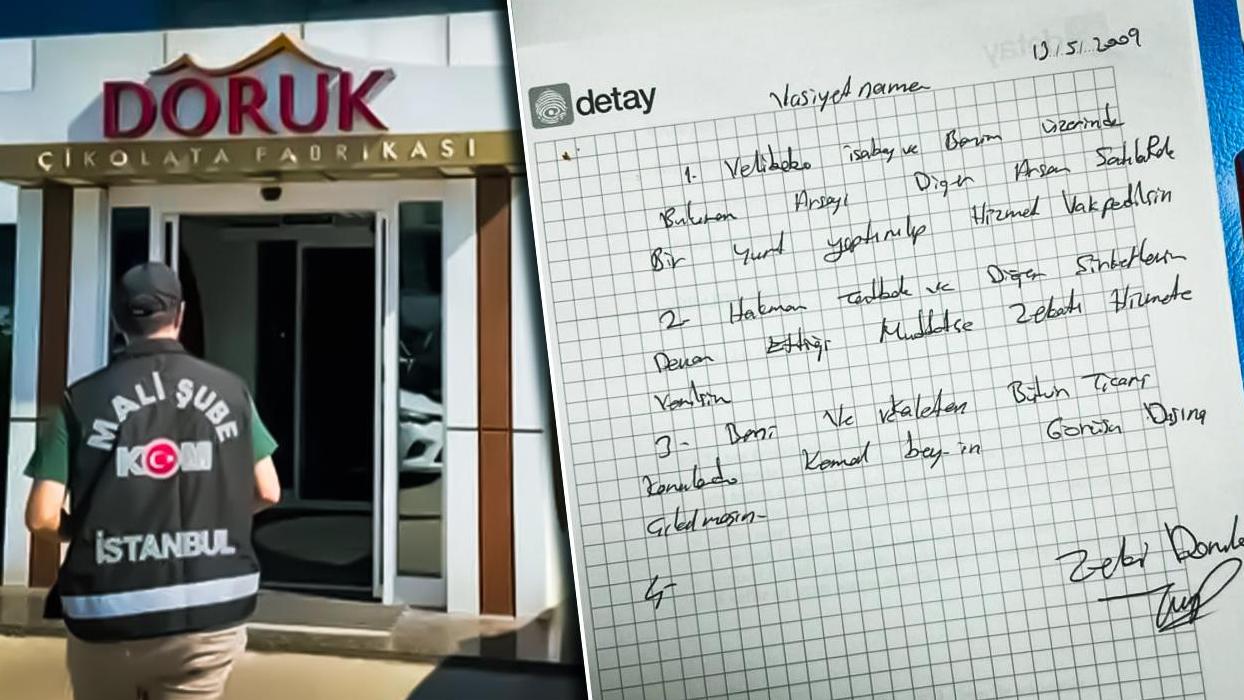 DORUK
ÇİKOLATA FABRİKASI
MALİ ŞUBE
KOM
İSTANBUL
detay
13.5.2009
Vasiyetname
1. Velibaba isabey ve Benim üzerinde
Bulunan Arsayı Diğer Arsan
Bir Yurt yaptırılıp Hizmet Vakfedilsin
2- ve Diğer Şirketlerin
Devam Ettiği Müddetçe Zekatı Hizmete
Verilsin
3- Beni Ve vekaleten Bütün Ticari
Konularda Kemal bey-in Görüşü Dışına
Çıkılmasın-
4-
Zeki Doruk